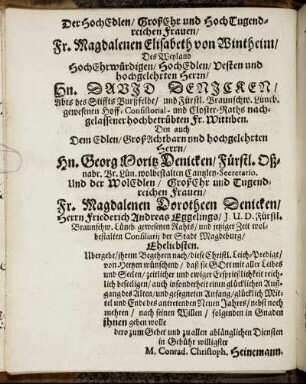 Der HochEdlen/ GroßEhr und HochTugend-
reichen Frauen/
Fr. Magdalenen Elisabeth von Wintheim/
Des Weyland
HochEhrwürdigen/ HochEdlen/ Vesten und
hochgelehrten Herrn/
Hn. DAVID DENICKEN/
Abts des Stiffts Burßfelde/ und Fürstl. Braunschw. Lüneb.
gewesenen Hoff- Consistorial- und Closter-Raths nach-
gelassener hochbetrübten Fr. Wittiben.
Den auch
Dem Edlen/ GroßAchtbarn und hochgelehrten
Herrn/
Hn. Georg Moritz Denicken/ Fürstl. Oß-
nabr. Br. Lün. wolbestalten Cantzley-Secretario.
Und der WolEdlen/ GroßEhr und Tugend-
reichen Frauen/
Fr. Magdalenen Dorotheen Denicken/
Herrn Friederich Andreas Eggelings/ J. U. D. Fürstl.
Braunschw. Lüneb. gewesenen Rahts/ und jetziger Zeit wol-
bestalten Consiliarii der Stadt Magdeburg/
Eheliebsten.
Ubergebe/ ihrem Begehren nach/ diese Christl. Leich-Predigt/
von Hertzen wünschend/ daß sie GOtt mit aller Leibes
und Seelen/ zeitlicher und ewiger Ersprießlichkeit reich-
lich beseeligen/ auch insonderheit einen glücklichen Auß-
gang des Alten/ und gesegneten Anfang/ glücklich Mit-
tel und Ende des antretenden Neuen Jahres/ nebst noch
mehren/ nach seinen Willen/ folgenden in Gnaden
ihnen geben wolle
dero zum Gebet und zuallen abläuglichen Diensten
in Gebühr willigster
M. Conrad. Christoph. Heinemann.